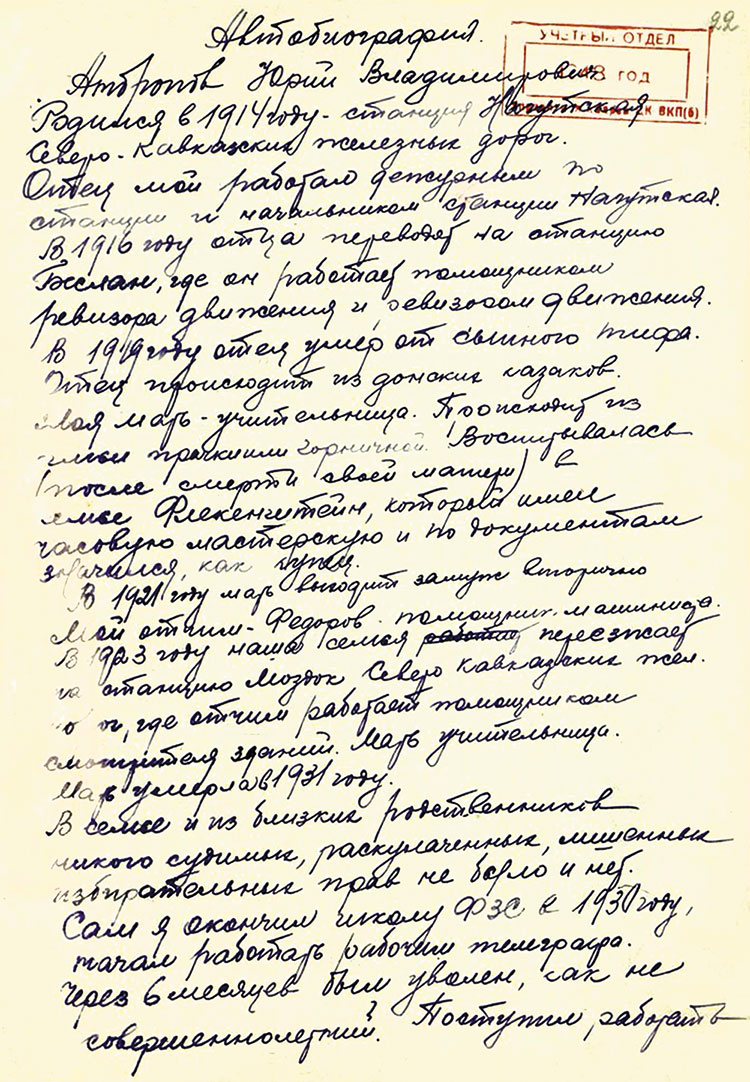 22
Автобиография.
УЧЕТНЫЙ ОТДЕЛ
1948 ГОД
ЦК ВКП(б)
Андропов Юрий Владимирович
Родился в 1914 году - станция Нагутская
Северо-Кавказских железных дорог.
Отец мой работал дежурным по
станции и начальником станции Нагутская.
В 1916 году отца переводят на станцию
Беслан, где он работает помощником
ревизора движения и ревизором движения.
В 1919 году отец умер от сыпного тифа.
Отец происходит из донских казаков.
Моя мать - учительница. Происходит из
семьи прачки или горничной. Воспитывалась
(после смерти своей матери) в
семье Флекенштейн, который имел
часовую мастерскую и по документам
значился, как купец.
В 1921 году мать выходит замуж вторично
Мой отчим - Федоров - помощник машиниста.
В 1923 году наша семья работает переезжает
на станцию Моздок Северо Кавказских жел.
дорог, где отчим работает помощником
смотрителя зданий. Мать учительница.
Мать умерла в 1931 году.
В семье и из близких родственников
никого судимых, раскулаченных, лишенных
избирательных прав не было и нет.
Сам я окончил школу ФЗС в 1930 году,
начал работать рабочим телеграфа.
Через 6 месяцев был уволен, как не
совершеннолетний. Поступил работать